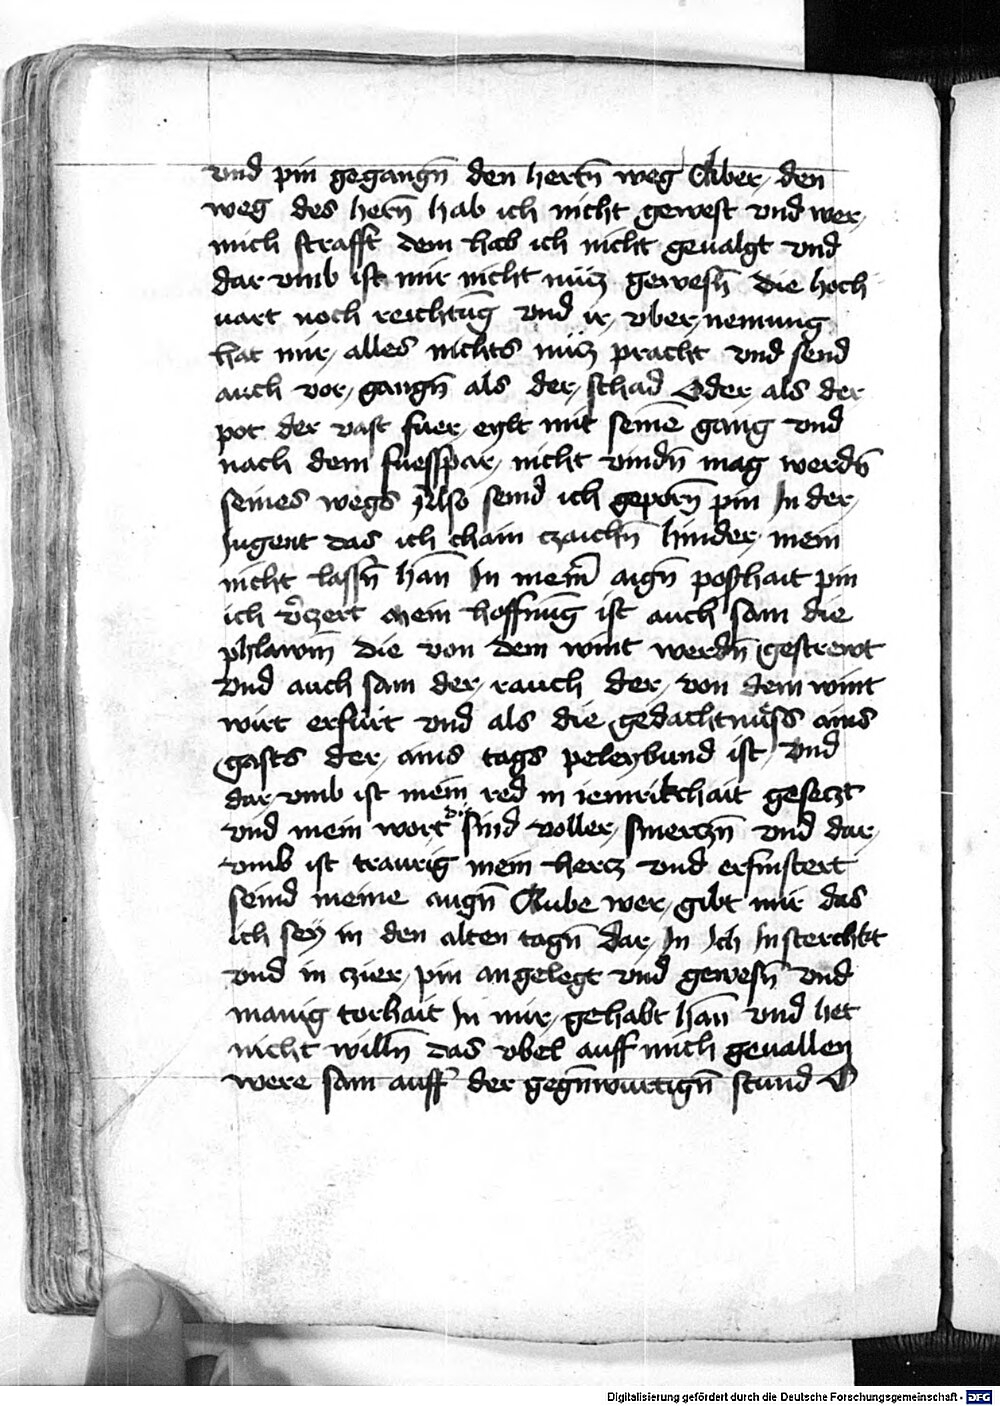 vnd pin gegangn̄ den hertn̄ weg Aber den
weg des hern̄ hab ich nicht gewest vnd wer
mich strafft dem hab ich nicht geualgt vnd
dar vmb ist mir nicht nücz gewesn̄ die hoch
uart noch reichtūg vnd ir vber nemung
hat mir alles nichts nücz pracht vnd send
auch vor gangn̄ als der schad Oder als der
pot der vast fuer eylt mit seinē gang vnd
nach dem fuesspar nicht vindn̄ mag werdn̄
seines wegs Also seind ich geporn̄ pin In der
Jugent das ich chain czaichn̄ hinder mein
nicht lassn̄ han In mein̄ aign̄ poshait pin
ich v̄czert Mein hoffnūg ist auch sam die
phlawm̄ die von dem wint werdn̄ gestrewt
vnd auch sam der rauch der von dem wint
wirt erfürt vnd als die gedachtnüss ains
gasts der ains tags peleybund ist vnd
dar vmb ist mein red in iemrikchait geseczt
vnd mein wort die sind voller smerczn̄ vnd dar
vmb ist traurig mein hercz vnd erfinstert
seind meine augn̄ Aube wer gibt mir das
ich sey in den alten tagn̄ dar In Ich In sterchkt
vnd in czier pin angelegt vnd gewesn̄ vnd
manig torhait In mir gehabt han vnd het
nicht willn̄ das vbel auff mich geuallen
were sam auff der gegn̄wurtign̄ stund O
Digitalisierung gefördert durch die Deutsche Forschungsgemeinschaft - DFG